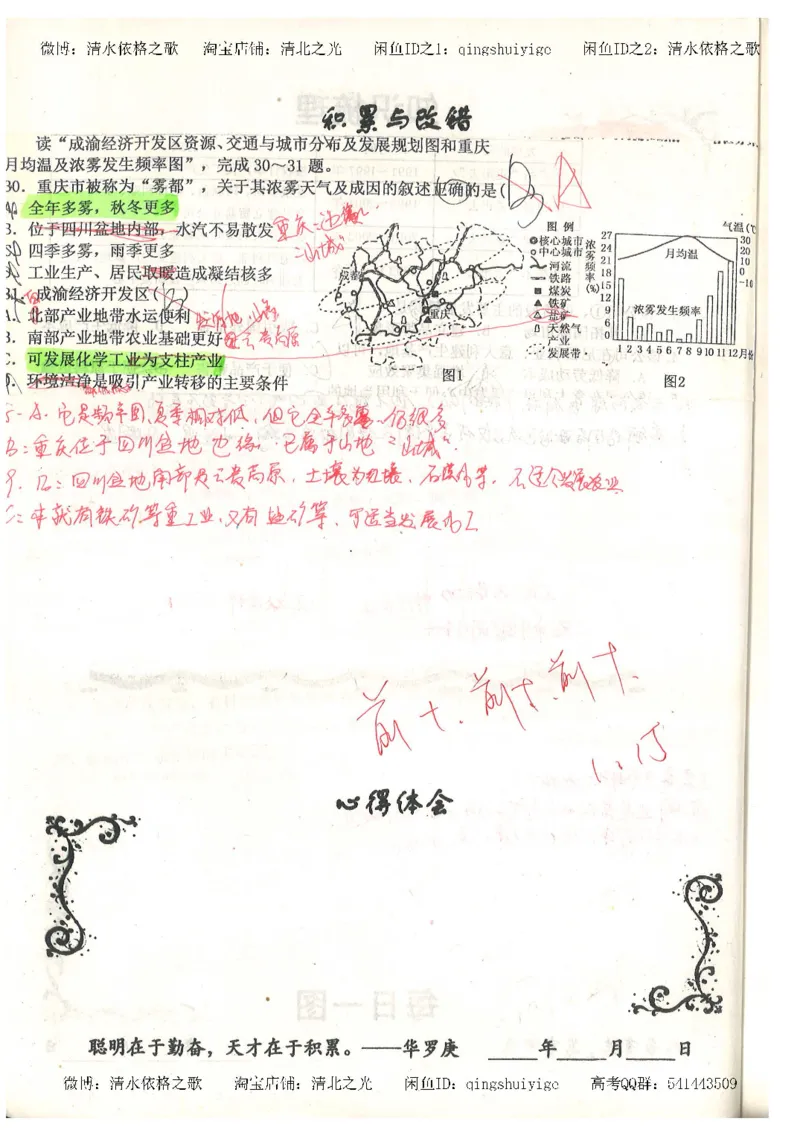 微博：清水依格之歌 淘宝店铺：清北之光 闲鱼ID之1：qingshuiyige 闲鱼ID之2：清水依格之歌
积累与改错
读“成渝经济开发区资源、交通与城市分布及发展规划图和重庆
月均温及浓雾发生频率图”，完成30～31题。
30．重庆市被称为“雾都”，关于其浓雾天气及成因的叙述正确的是（ B A
全年多雾，秋冬更多
B．位于四川盆地内部，水汽不易散发
重庆：边缘
“山城”
四季多雾，雨季更多
工业生产、居民取暖造成凝结核多
31．成渝经济开发区（
A．北部产业地带水运便利
B．南部产业地带农业基础更好
云贵高原
C．可发展化学工业为支柱产业
D．环境洁净是吸引产业转移的主要条件
成都
重庆
图1
图 例
核心城市
中心城市
河流
铁路
煤炭
铁矿
盐矿
天然气
产业
发展带
浓雾频率(%)
27
24
21
18
15
12
9
6
3
0
月均温
浓雾发生频率
气温(℃
30
20
10
0
-10
1 2 3 4 5 6 7 8 9 10 11 12月份
图2
A：它是频率图，夏季相对低，但它全年 仍很多
B：重庆位于四川盆地边缘，已属于山地“山城”.
B：四川盆地南部是云贵高原，土壤为红壤，石 等，不适合发展农业
C：本就有铁矿等重工业，又有盐矿等，可适当发展为工
前十、前十、前十、
心得体会
聪明在于勤奋，天才在于积累。——华罗庚 ____年____月____日
微博：清水依格之歌 淘宝店铺：清北之光 闲鱼ID：qingshuiyige 高考QQ群：541443509